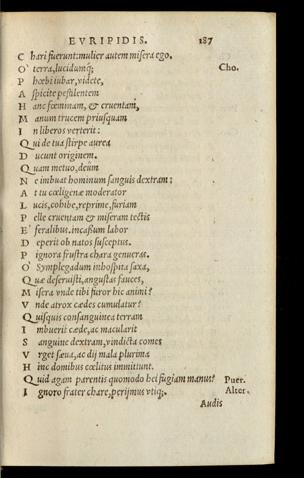 EVRIPIDIS. 187
C hari fuerunt: mulier autem misera ego.
O' terra, lucidumq; Cho.
P hœbi iubar, videte,
A spicite pestilentem
H anc fœminam, & cruentam,
M anum trucem priusquam
I n liberos verterit:
Q ui de tua stirpe aurea
D ucunt originem.
Q uam metuo, deûm
N e imbuat hominum sanguis dextram:
A t tu cœligenæ moderator
L ucis, cohibe, reprime, furiam
P elle cruentam & miseram tectis
E' feralibus. incassum labor
D eperit ob natos susceptus.
P ignora frustra chara genueras.
O' Symplegadum inhospita saxa,
Q uæ deseruisti, angustas fauces,
M isera vnde tibi furor hic animi?
V nde atrox cædes cumulatur?
Q uisquis consanguinea terram
I mbuerit cæde, ac macularit
S anguine dextram, vindicta comes
V rget sæua, ac dij mala plurima
H inc domibus cœlitus immittunt.
Q uid agam parentis quomodo hei fugiam manus? Puer.
I gnoro frater chare, perijmus vtiq;. Alter.
Audis